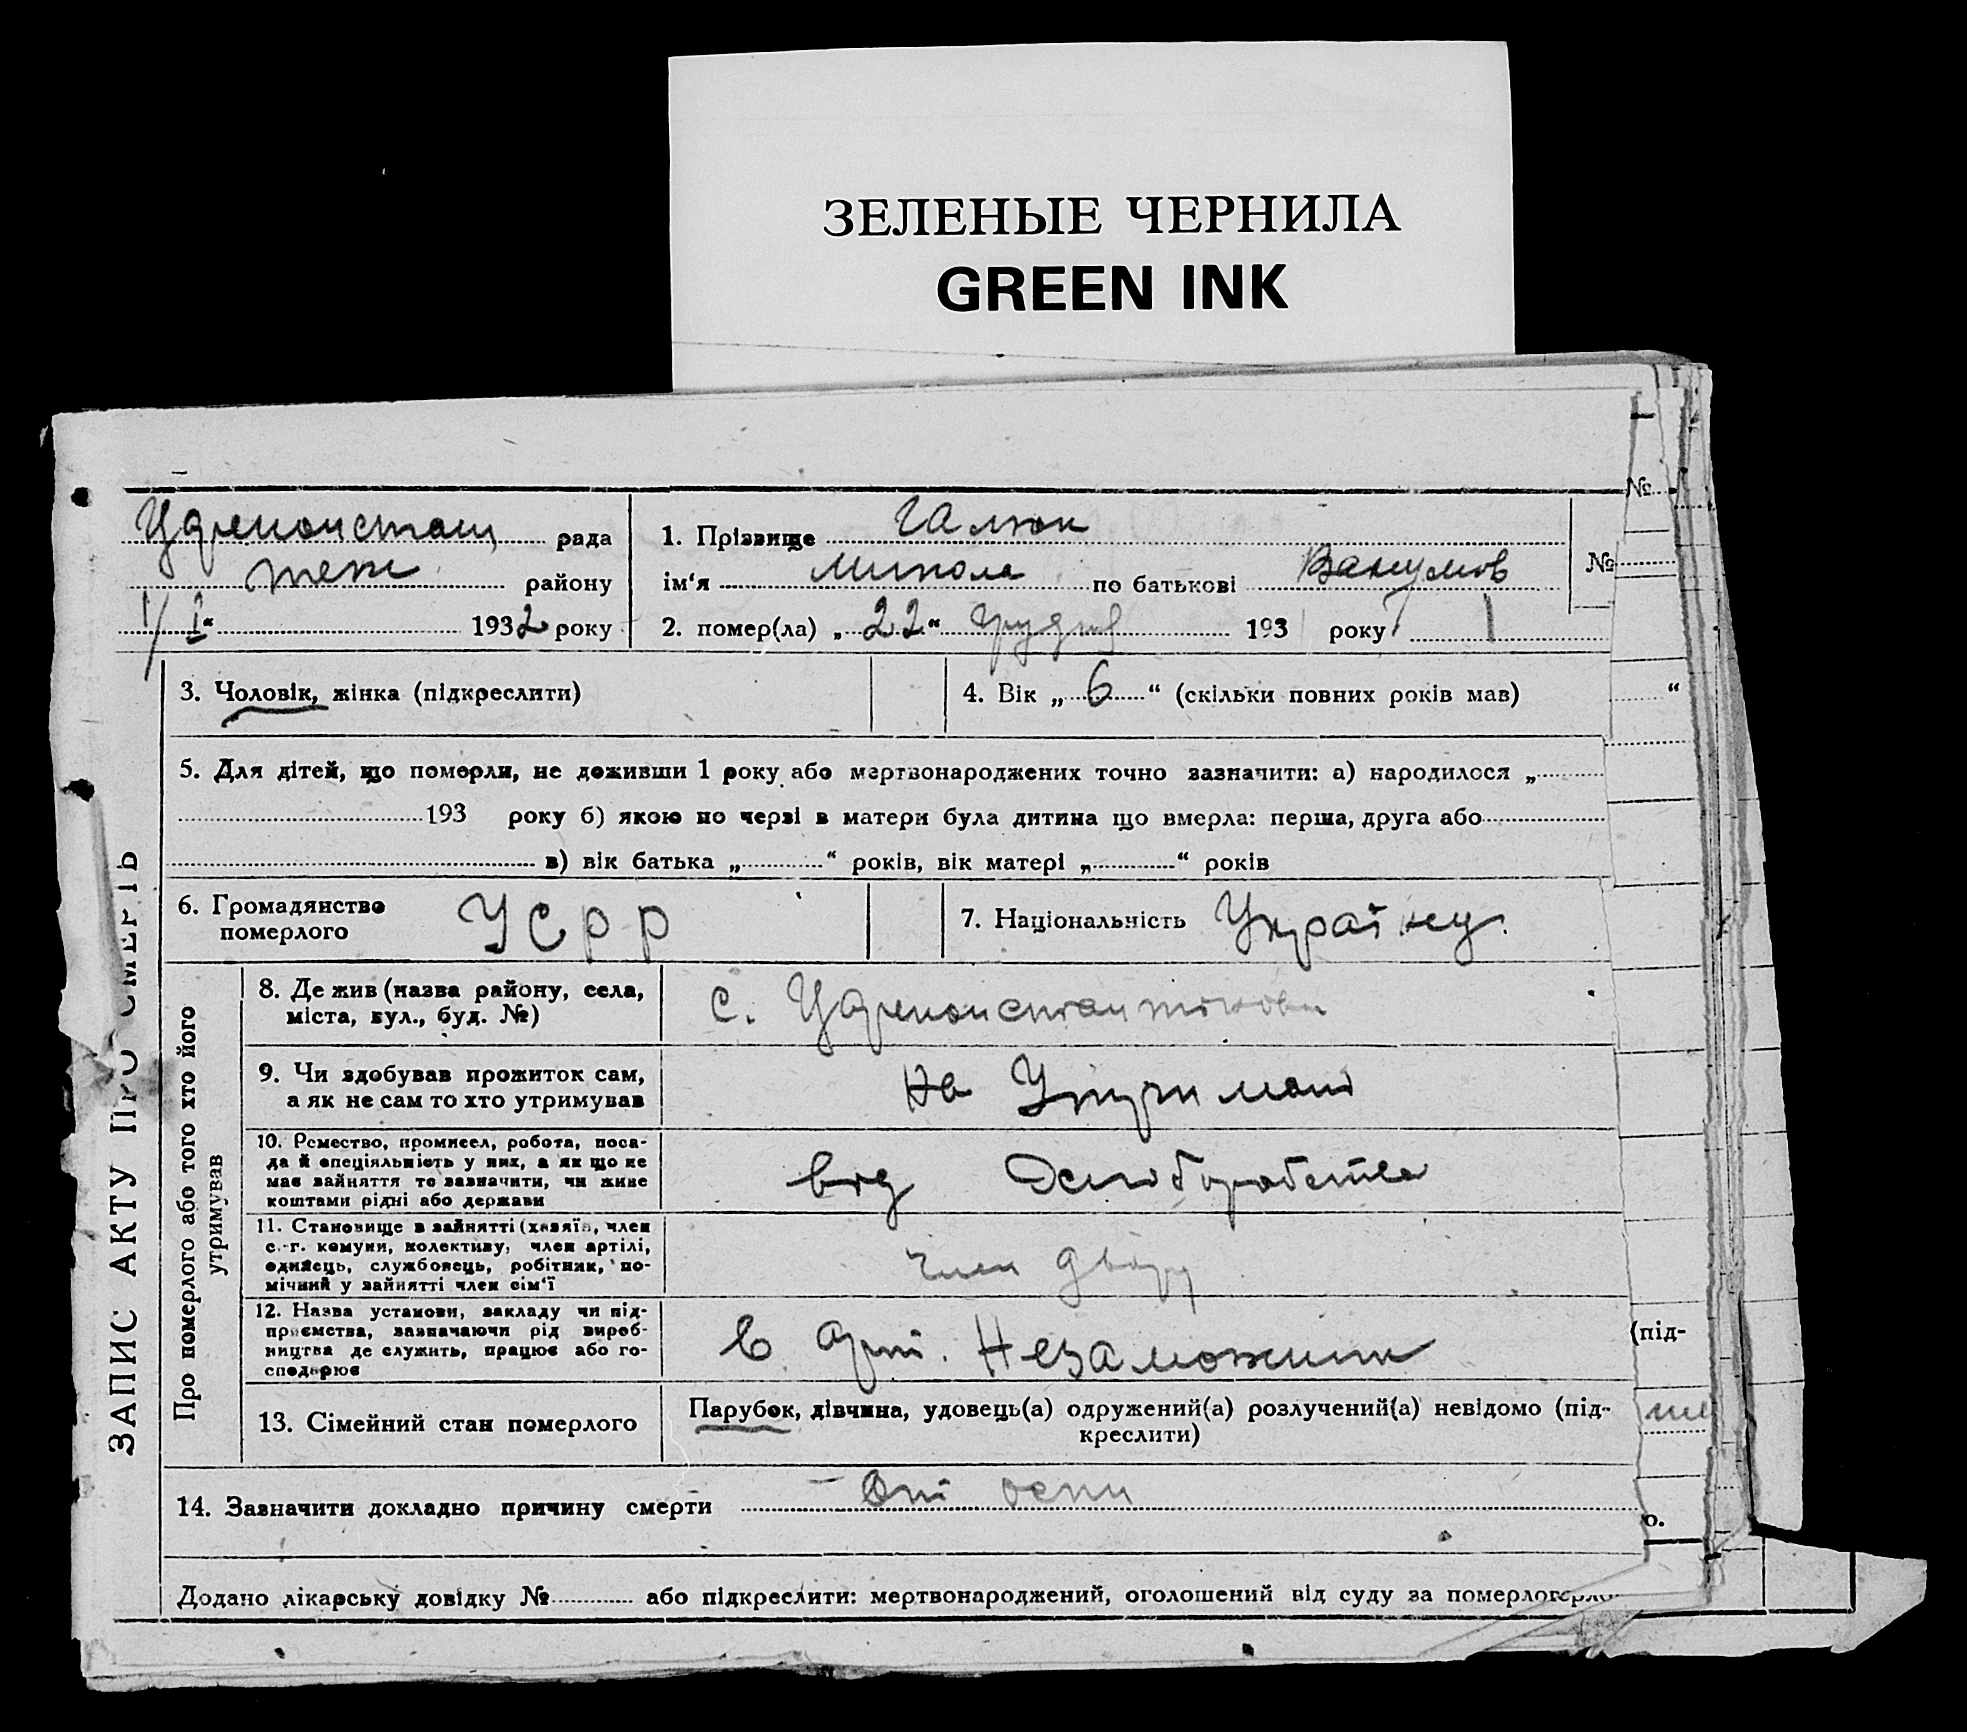 ЗЕЛЕНЫЕ ЧЕРНИЛА
GREEN INK
рада
району
1/I 1932 року
1. Прізвище Галюк
ім‘я Микола по батькові Вакумов
2. помер(ла) „22“ грудня 193 1 року
№
№
3. Чоловік, жінка (підкреслити)
4. Вік „6“ (скільки повних років мав)
“
5. Для дітей, що померли, не доживши 1 року або мертвонароджених точно зазначити: а) народилося „
193 року б) якою по черві в матери була дитина що вмерла: перша, друга або
в) вік батька „ “ років, вік матері „ “ років
6. Громадянство
померлого
УСРР
7. Національність Україну.
ЗАПИС АКТУ ПРО СМЕРТЬ
Про померлого або того хто його
утримував
8. Де жив (назва району, села,
міста, вул., буд. №)
с. Цареконстантиновка
9. Чи здобував прожиток сам,
а як не сам то хто утримував
на Утримані
10. Ремество, промисел, робота, поса-
да й спеціяльність у них, а як що не
має зайняття то зазначити, чи живе
коштами рідні або держави
від
11. Становище в зайнятті (хазяїн, член
с.-г. комуни, колективу, член артілі,
одинець, службовець, робітник, по-
мічний у зайнятті член сім‘ї
член двору
12. Назва установи, закладу чи під-
приємства, зазначаючи рід вироб-
ництва де служить, працює або го-
сподарює
в арт. Незаможник
(під-
13. Сімейний стан померлого
Парубок, дівчина, удовець(а) одружений(а) розлучений(а) невідомо (під-
креслити)
14. Зазначити докладно причину смерти От оспи
о.
Додано лікарську довідку № або підкреслити: мертвонароджений, оголошений від суду за померлого